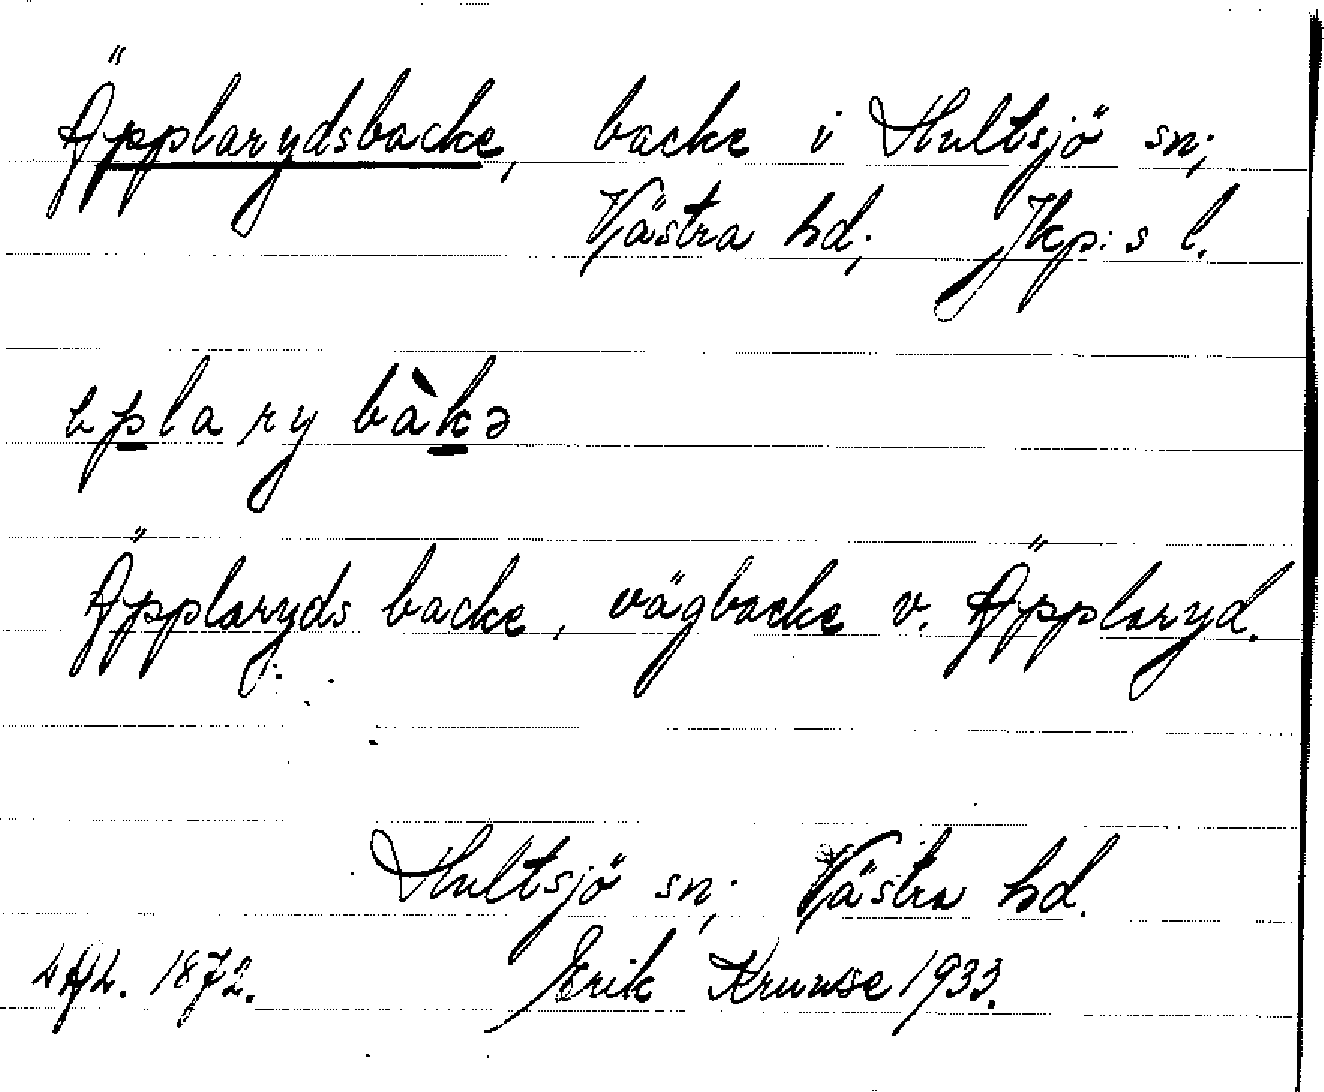 Äpplarydsbacke, backe i Hultsjö sn;
Västra hd; Jkp:s l.
plary bàkə
Äpplaryds backe, vägbacke v. Äpplaryd.
Hultsjö sn; Västra hd.
1872. Erik Krunse 1933.